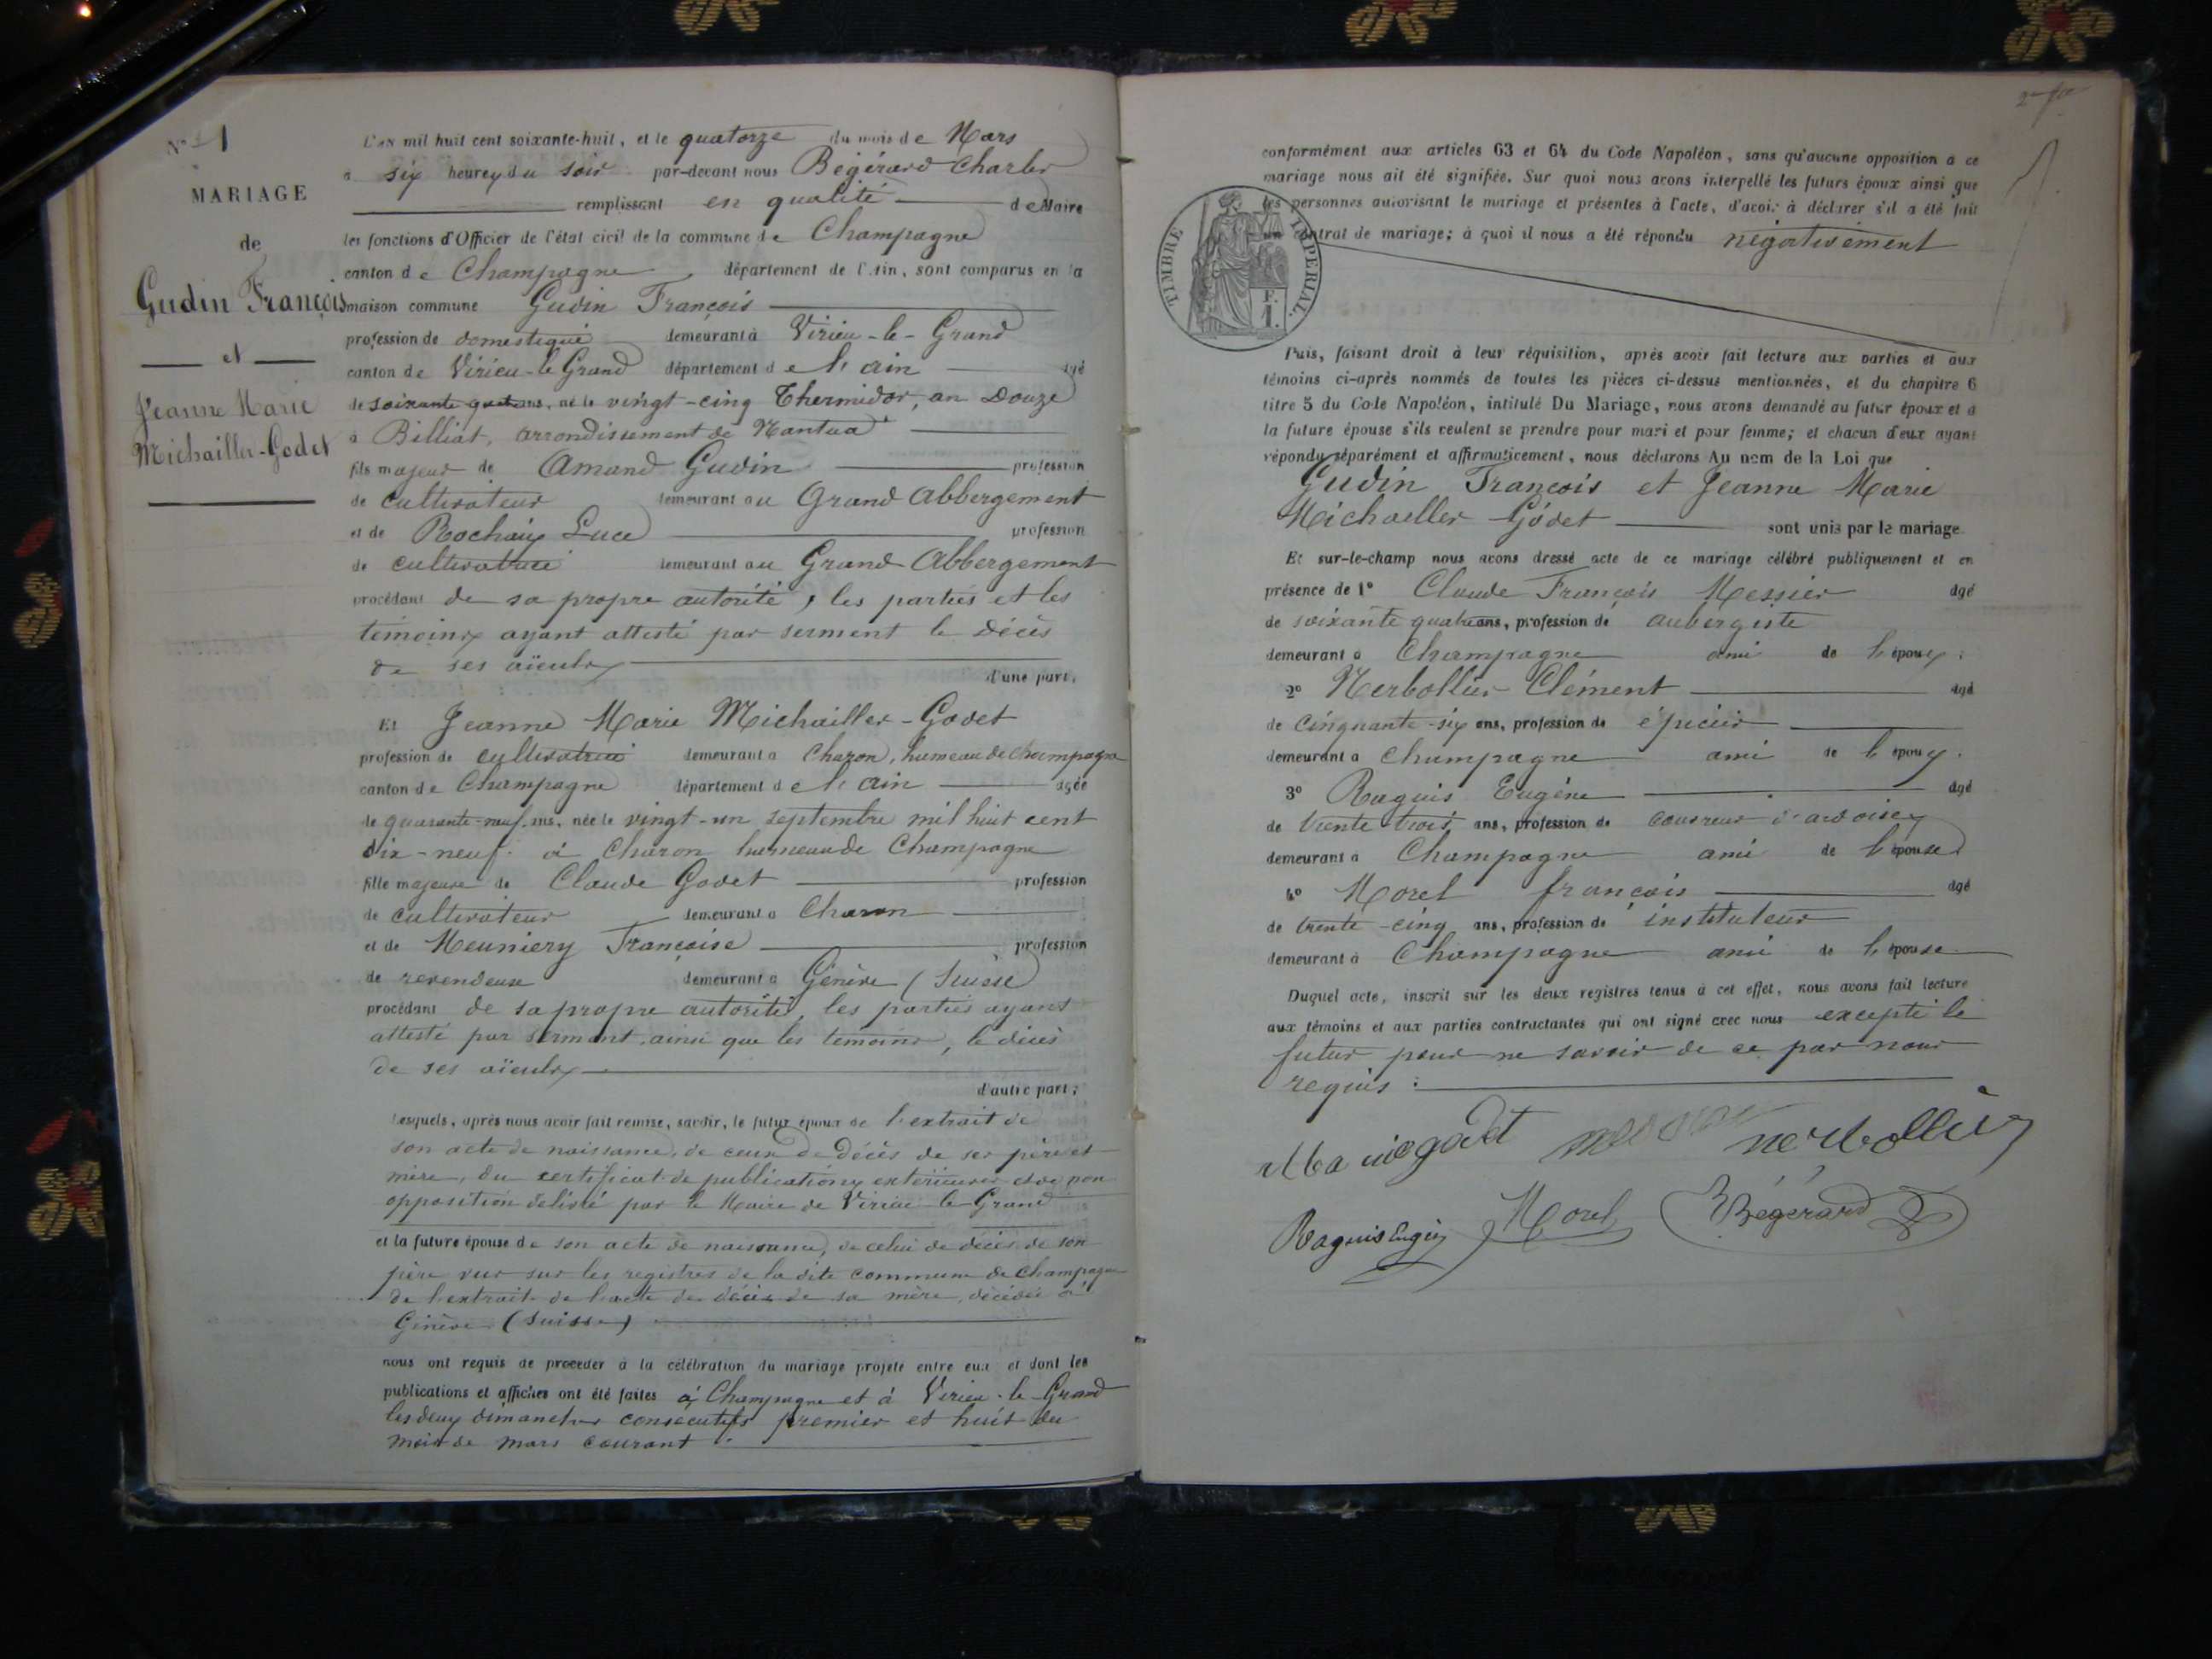 N° 1
MARIAGE
de
Gudin François
et
Jeanne Marie
Michailler-Godet
L'an mil huit cent soixante-huit, et le quatorze du mois de Mars
à six heures du soir par-devant nous Bégérard Charles
remplissant en qualité de Maire
les fonctions d'Officier de l'état civil de la commune de Champagne
canton de Champagne, département de l'Ain, sont comparus en la
maison commune Gudin François
profession de domestique demeurant à Virieu-le-Grand
canton de Virieu-le-Grand département de l'ain âgé
de soixante quatre ans, né le vingt-cinq Thermidor, an Douze
à Billiat, arrondissement de Nantua
fils majeur de Amand Gudin profession
de cultivateur demeurant au Grand Abbergement
et de Rochaix Luce profession
de cultivatrice demeurant au Grand Abbergement
procédant de sa propre autorité, les parties et les
témoins ayant attesté par serment le décès
de ses aïeulx
d'une part,
Et Jeanne Marie Michailler-Godet
profession de cultivatrice demeurant à Charon, hameau de champagne
canton de Champagne département de l'ain âgée
de quarante-neuf ans, née le vingt-un septembre mil huit cent
dix-neuf à Charon hameau de Champagne
fille majeure de Claude Godet profession
de cultivateur demeurant à Charon
et de Meuniery Françoise profession
de revendeuse demeurant à Génève (Suisse)
procédant de sa propre autorité, les parties ayant
attesté par serment ainsi que les témoins, le décès
de ses aïeulx
d'autre part;
Lesquels, après nous avoir fait remise, savoir, le futur époux de l'extrait de
son acte de naissance, de ceux de décès de ses père et
mère, du certificat de publications extérieures et de non
opposition délivré par le Maire de Virieu-le-Grand
et la future épouse de son acte de naissance, de celui de décès de son
père vus sur les registres de la dite commune de Champagne
de l'extrait de l'acte de décès de sa mère, décédée à
Génève (Suisse)
nous ont requis de procéder à la célébration du mariage projeté entre eux et dont les
publications et affiches ont été faites à Champagne et à Virieu-le-Grand
les deux dimanches consécutifs premier et huit du
mois de mars courant.
conformément aux articles 63 et 64 du Code Napoléon, sans qu'aucune opposition à ce
mariage nous ait été signifiée. Sur quoi nous avons interpellé les futurs époux ainsi que
les personnes autorisant le mariage et présentes à l'acte, d'avoir à déclarer s'il a été fait
un contrat de mariage; à quoi il nous a été répondu négativement
TIMBRE IMPERIAL.
F.
1.
Puis, faisant droit à leur réquisition, après avoir fait lecture aux parties et aux
témoins ci-après nommés de toutes les pièces ci-dessus mentionnées, et du chapitre 6
titre 5 du Code Napoléon, intitulé Du Mariage, nous avons demandé au futur époux et à
la future épouse s'ils veulent se prendre pour mari et pour femme; et chacun d'eux ayant
répondu séparément et affirmativement, nous déclarons Au nom de la Loi que
Gudin François et Jeanne Marie
Michaeller Gódet sont unis par le mariage.
Et sur-le-champ nous avons dressé acte de ce mariage célébré publiquement et en
présence de 1° Claude François Messier âgé
de soixante quatre ans, profession de aubergiste
demeurant à Champagne ami de l'époux;
2° Nerbollier Clément âgé
de cinquante-six ans, profession de épicier
demeurant à Champagne ami de l'époux.
3° Raguis Eugène âgé
de trente trois ans, profession de couvreur d'ardoises
demeurant à Champagne ami de l'épouse
4° Morel françois âgé
de trente-cinq ans, profession de instituteur
demeurant à Champagne ami de l'épouse
Duquel acte, inscrit sur les deux registres tenus à cet effet, nous avons fait lecture
aux témoins et aux parties contractantes qui ont signé avec nous excepté le
futur pour ne savoir de ce par nous
requis:
Marie godet nerbollier
Raguis Eugène Morel Bégérard